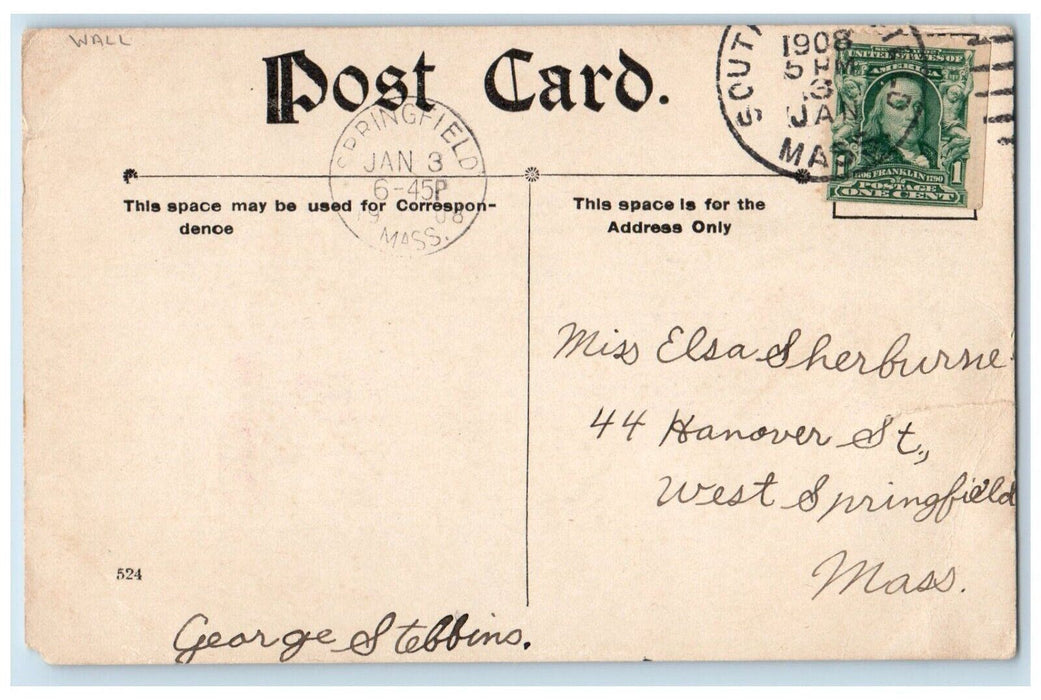 WALL
Post Card.
SPRINGFIELD
JAN 3
6-45P
1908
MASS.
SOUTH
1908
5 PM
3
JAN
MASS
UNITED STATES OF
AMERICA
1706 FRANKLIN 1790
POSTAGE 1
ONE CENT
This space may be used for Correspon-
dence
This space is for the
Address Only
Miss Elsa Sherburne
44 Hanover St.,
West Springfield
Mass.
524
George Stebbins.